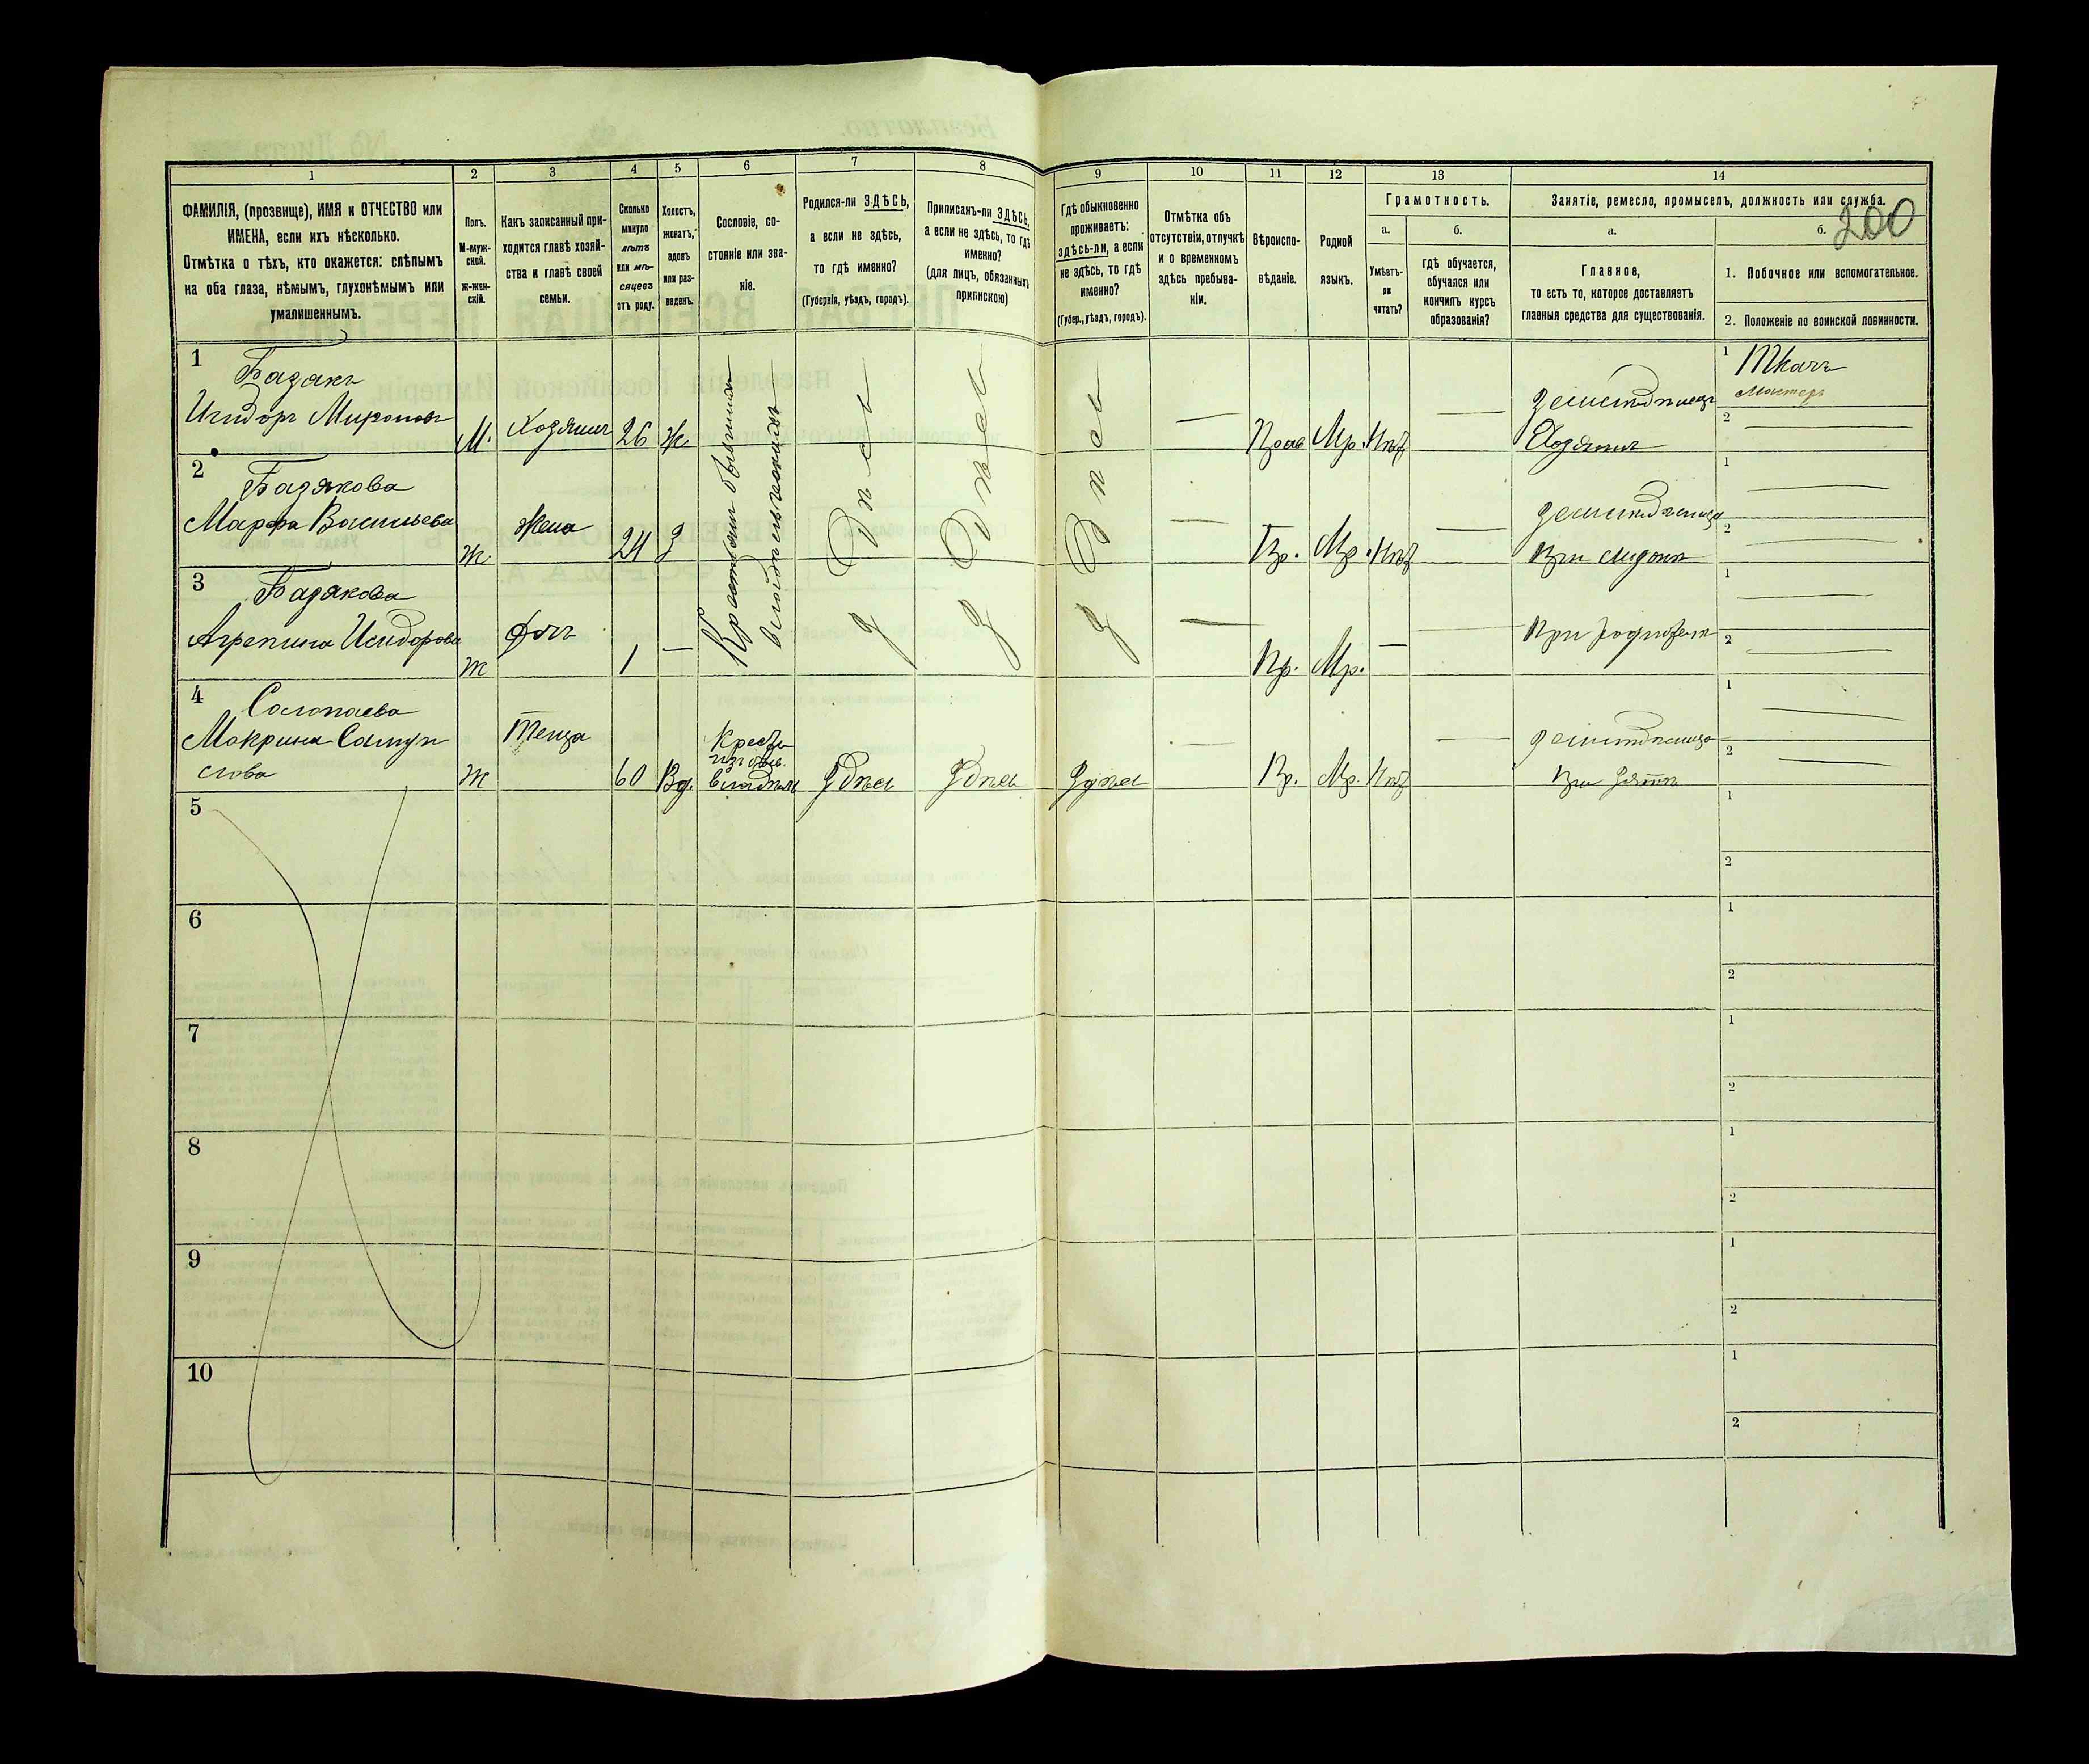 200
1 2 3 4 5 6 7 8 9 10 11 12 13 14
ФАМИЛІЯ, (прозвище), ИМЯ и ОТЧЕСТВО или
ИМЕНА, если ихъ нѣсколько.
Отмѣтка о тѣхъ, кто окажется: слѣпымъ
на оба глаза, нѣмымъ, глухонѣмымъ или
умалишеннымъ.
Полъ.
М-муж-
ской.
Ж-жен-
скій.
Какъ записанный при-
ходится главѣ хозяй-
ства и главѣ своей
семьи.
Сколько
минуло
лѣтъ
или мѣ-
сяцевъ
отъ роду.
Холостъ,
женатъ,
вдовъ
или раз-
веденъ.
Сословіе, со-
стояніе или зва-
ніе.
Родился-ли ЗДѢСЬ,
а если не здѣсь,
то гдѣ именно?
(Губернія, уѣздъ, городъ).
Приписанъ-ли ЗДѢСЬ,
а если не здѣсь, то гдѣ
именно?
(для лицъ, обязанныхъ
припискою)
Гдѣ обыкновенно
проживаетъ:
здѣсь-ли, а если
не здѣсь, то гдѣ
именно?
(Губер., уѣздъ, городъ).
Отмѣтка объ
отсутствіи, отлучкѣ
и о временномъ
здѣсь пребыва-
ніи.
Вѣроиспо-
вѣданіе.
Родной
языкъ.
Грамотность.
а.
Умѣетъ-
ли
читать?
б.
гдѣ обучается,
обучался или
кончилъ курсъ
образованія?
Занятіе, ремесло, промыселъ, должность или служба.
а.
Главное,
то есть то, которое доставляетъ
главныя средства для существованія.
б.
1. Побочное или вспомогательное.
2. Положеніе по воинской повинности.
1 Базякъ
Исидоръ Мироновъ М. Хозяинъ 26 Ж.
Крестьяне бывшихъ
Здѣсь Здѣсь Здѣсь
— Прав Мр. Нѣт — Земледѣлецъ
Хозяинъ
1 Ткачъ
мастеръ
2 —
2 Базякова
Марфа Васильева Ж. Жена 24 З
— Пр. Мр. Нѣт — Земледѣлица
При мужѣ
1 —
2 —
3 Базякова
Агрепина Исидорова Ж Дочь 1 —
— Пр. Мр. — — При родителѣ
1 —
2 —
4 Солопаева
Макрина Самуи
лова Ж Теща 60 Вд.
Крестья
Здѣсь Здѣсь Здѣсь
— Пр. Мр. Нѣт — Земледѣлица
При зятѣ
1 —
2 —
5 1 2
6 1 2
7 1 2
8 1 2
9 1 2
10 1 2